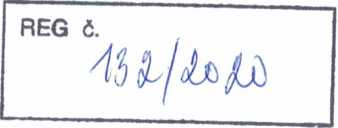 REG č.
132/2020